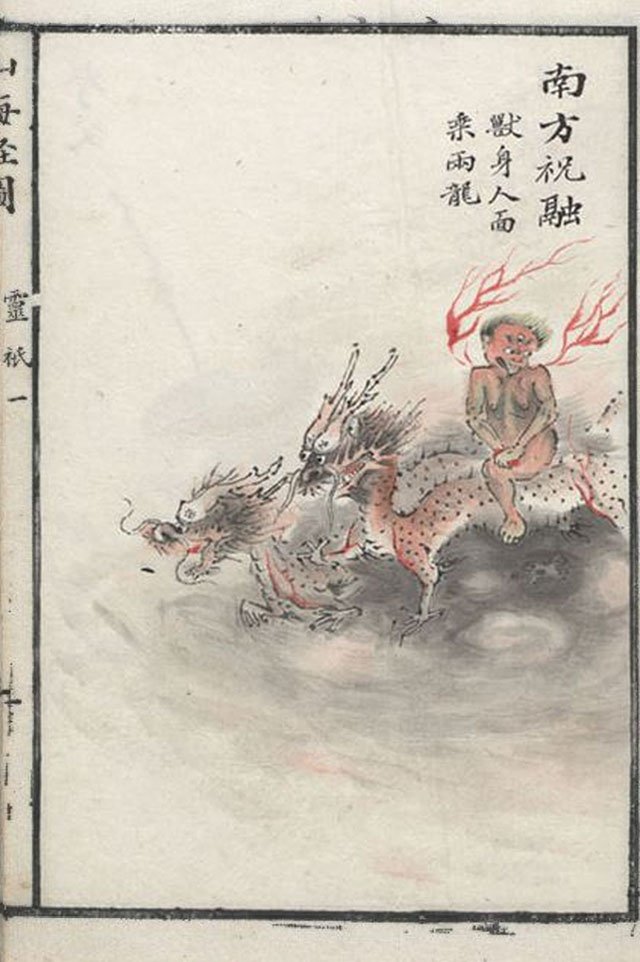 南方祝融
獸身人面
乗兩龍
山海经圖
靈祇一